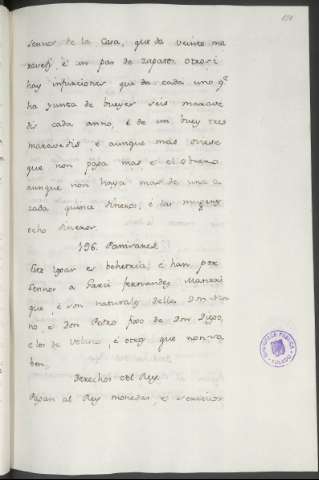 sennor de la Casa, que da veinte ma
ravedis, e un par de zapatos otrosi
hay infurcioner que da cada uno q.e
ha yunta de bueyer seis marave
dis cada anno, e de un buey tres
maravedis, e aunque mas oviese
que non paga mas e el
aunque non haya mas de una a
cada quince dineros, e las mugeres
ocho dineros.
196. Pamanes
Este logar es behetria, e han por
sennor a Garci fernandez Manrri
que, e son naturales della Don Nu
no, e Don Pedro fijo de Don Diego,
e los de Velasco, e otros que non sa
ben.
Derechos del Rey.
Pagan al Rey monedas, e servicios